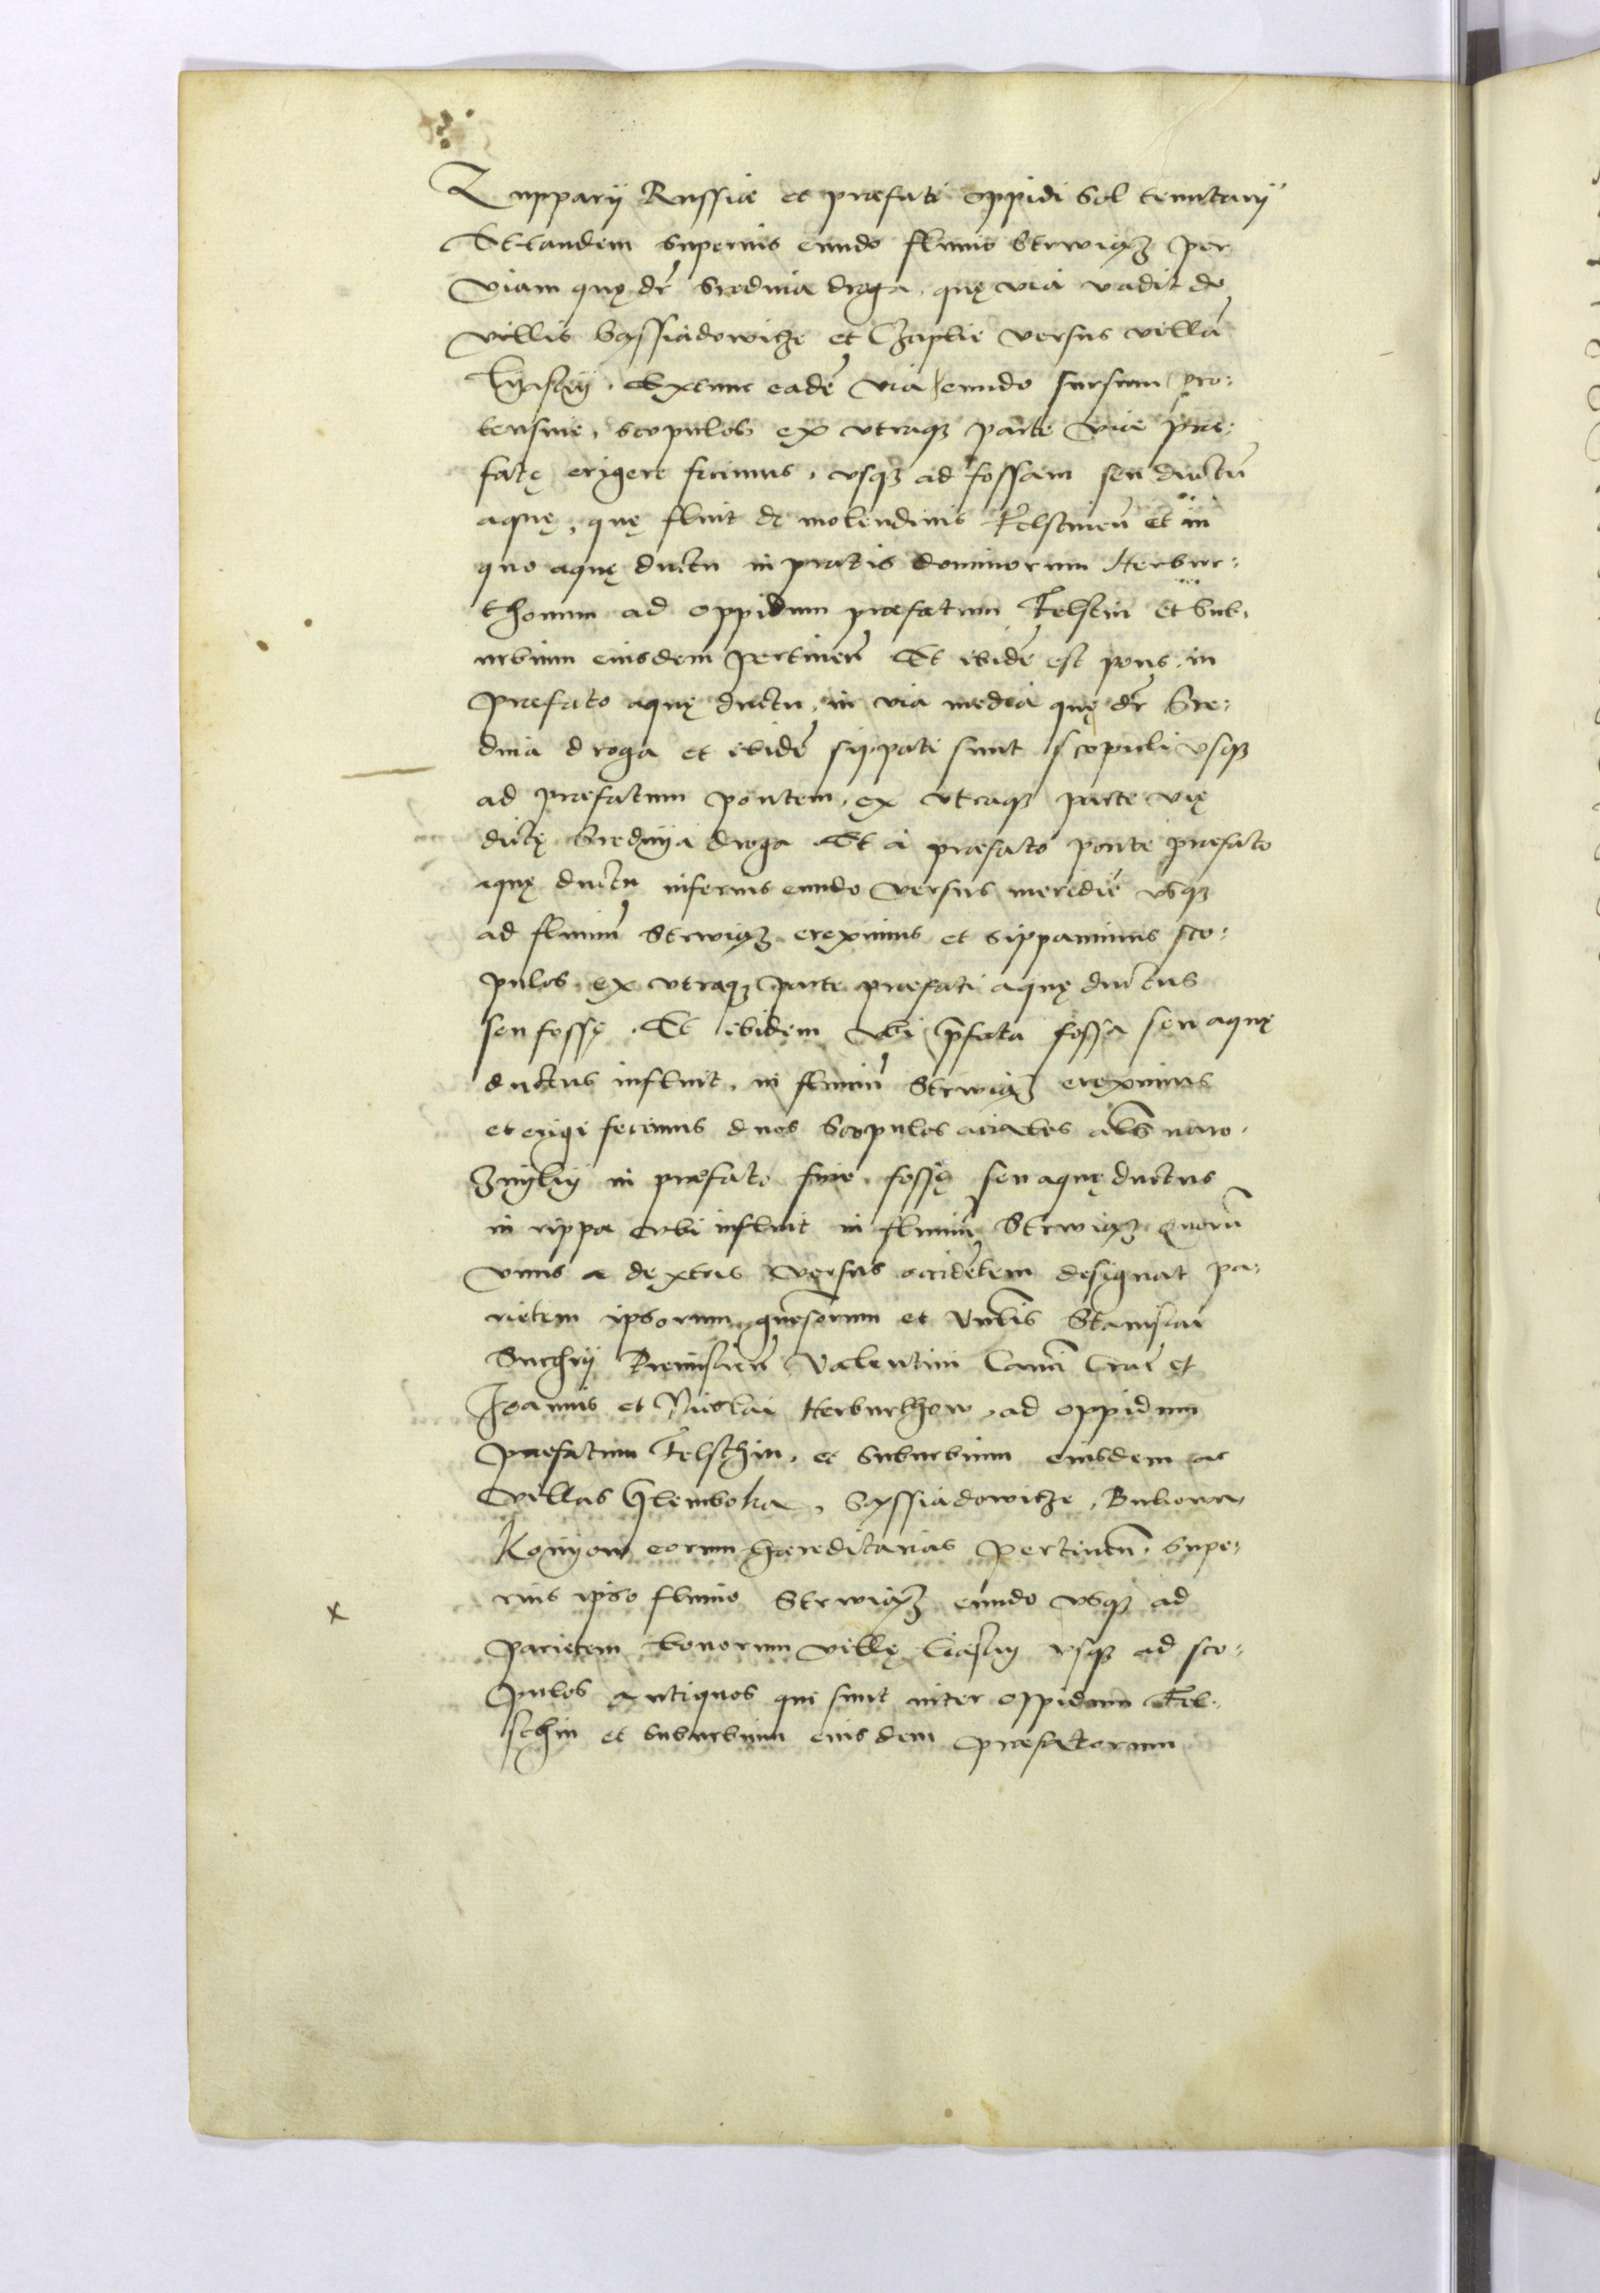 Zupparij Russiæ et præfati oppidi Sol tenutarij
Et tandem superius eundo fluuio Strwiąz per
viam quę dr̃ Srednia droga, quę via vadit de
villis Sąssiadowicze et Czaplie versus villã
Liaskij. Extunc eadẽ via eundo sursum pro:
tensiue, scopulos ex vtraqꝫ parte viæ præ:
fatę erigere fecimus, vsqꝫ ad fossam seu ductũ
aquę, quę fluit de molendinis Felstineñ et in
quo aquę ductu in pratis dominorum Herbur:
thonum ad oppidum præfatum Felstin et sub:
urbium eiusdem pertineñ Et ibidẽ est pons in
præfato aquę ductu, in via media quę dr̃ Sre:
dnia droga et ibidẽ sippati sunt scopuli vsqꝫ
ad præfatum pontem, ex vtraqꝫ parte vię
dictę Srednÿa droga Et a præfato ponte præfato
aquę ductu inferius eundo versus meridiẽ vsqꝫ
ad fluuiũ Strwiąz ereximus et sippauimus sco:
pulos, ex vtraqꝫ parte præfati aquę ductus
seu fossę. Et ibidem vbi p̃fata fossa seu aquę
ductus influit, in fluuiũ Strwiąz ereximus
et erigi fecimus duos scopulos aciales al's naro:
znÿkÿ in præfato fine, fossę seu aquę ductus
in rippa vbi influit in fluuiũ Strwiąz quorũ
vnus a dextris versus occidẽtem designat pa:
rietem ipsorum, et Stanislai
Suchÿ Præmisłieñ Valentini Crac̃ et
Joannis et Nicolai Herburthow, ad oppidum
præfatum Felschin, et suburbium eiusdem ac
villas Hlemboka, Sąssiadowicze, Bukowa,
Konyow eorum hæreditarias pertineñ. Supe:
rius ipso fluuio Strwiąz eundo vsqꝫ ad
parietem bonorum villę Liaskÿ vsqꝫ ad sco:
pulos antiquos qui sunt inter oppidum Fel:
schin et suburbium eiusdem præfatorum